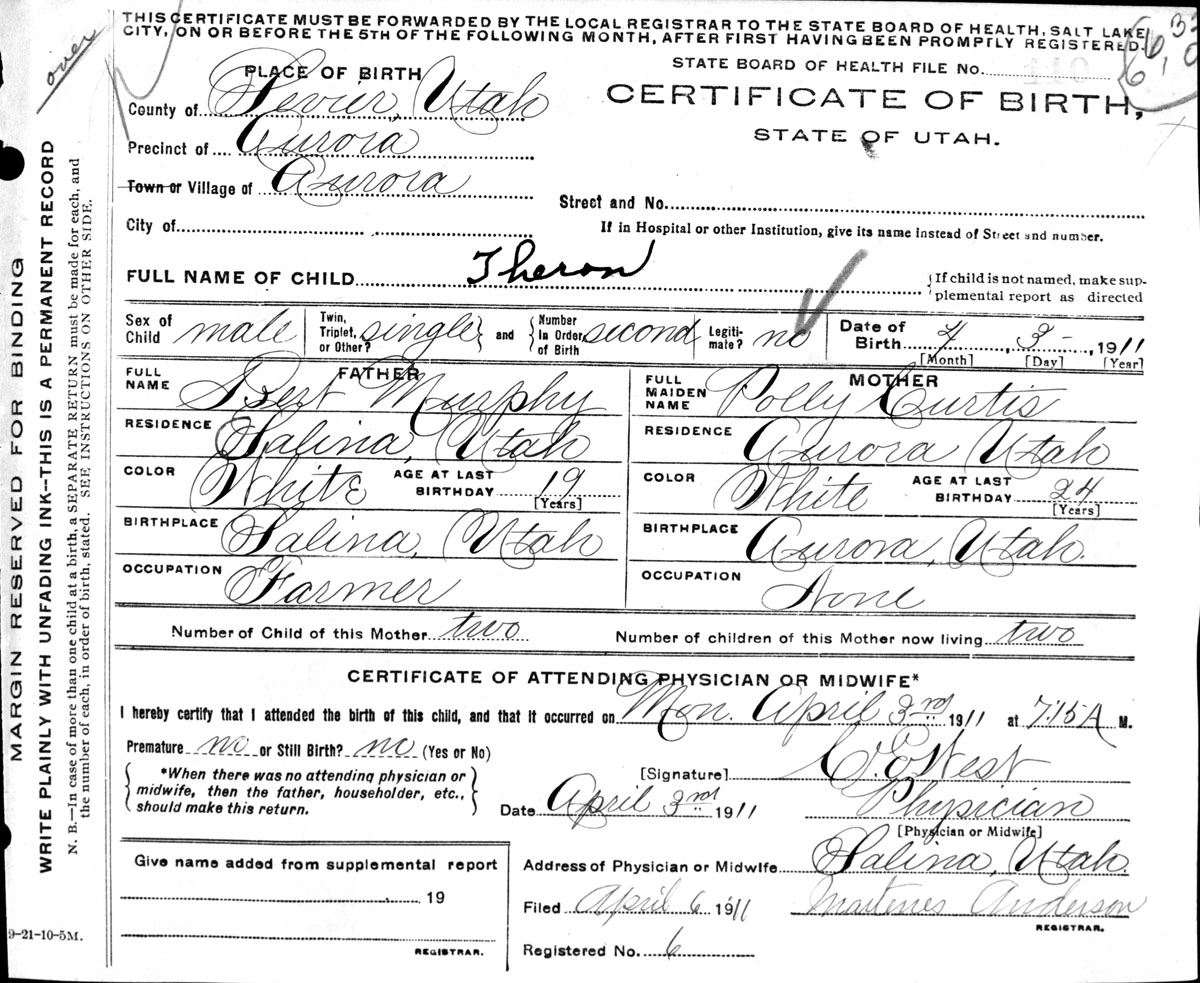 THIS CERTIFICATE MUST BE FORWARDED BY THE LOCAL REGISTRAR TO THE STATE BOARD OF HEALTH, SALT LAKE
CITY, ON OR BEFORE THE 5TH OF THE FOLLOWING MONTH, AFTER FIRST HAVING BEEN PROMPTLY REGISTERED.
over
STATE BOARD OF HEALTH FILE No.
CERTIFICATE OF BIRTH,
STATE OF UTAH.
PLACE OF BIRTH
County of Sevier, Utah
Precinct of Aurora
Town or Village of Aurora
Street and No.
City of
If in Hospital or other Institution, give its name instead of Street and number.
FULL NAME OF CHILD Theron
{If child is not named, make sup-
plemental report as directed
Sex of Child male
Twin, Triplet, or Other? single
and
Number In Order of Birth second
Legiti-mate? no
Date of Birth 4, 3-, 1911
[Month] [Day] [Year]
FATHER
FULL NAME Bert Murphy
RESIDENCE Salina, Utah
COLOR White AGE AT LAST BIRTHDAY 19
[Years]
BIRTHPLACE Salina, Utah
OCCUPATION Farmer
MOTHER
FULL MAIDEN NAME Polly Curtis
RESIDENCE Aurora Utah
COLOR White AGE AT LAST BIRTHDAY 24
[Years]
BIRTHPLACE Aurora, Utah.
OCCUPATION None
Number of Child of this Mother two Number of children of this Mother now living two
CERTIFICATE OF ATTENDING PHYSICIAN OR MIDWIFE*
I hereby certify that I attended the birth of this child, and that it occurred on Mon. April 3rd 1911 at 7:15 A M.
Premature no or Still Birth? no (Yes or No)
*When there was no attending physician or
midwife, then the father, householder, etc.,
should make this return.
[Signature] C. E. West
Date April 3rd 1911
Physician
[Physician or Midwife]
Give name added from supplemental report
19
REGISTRAR.
Address of Physician or Midwife Salina, Utah.
Filed April 6 1911 Anderson
REGISTRAR.
Registered No. 6
MARGIN RESERVED FOR BINDING
WRITE PLAINLY WITH UNFADING INK—THIS IS A PERMANENT RECORD
N. B.—In case of more than one child at a birth, a SEPARATE RETURN must be made for each, and
the number of each, in order of birth, stated. SEE INSTRUCTIONS ON OTHER SIDE.
9-21-10-5M.